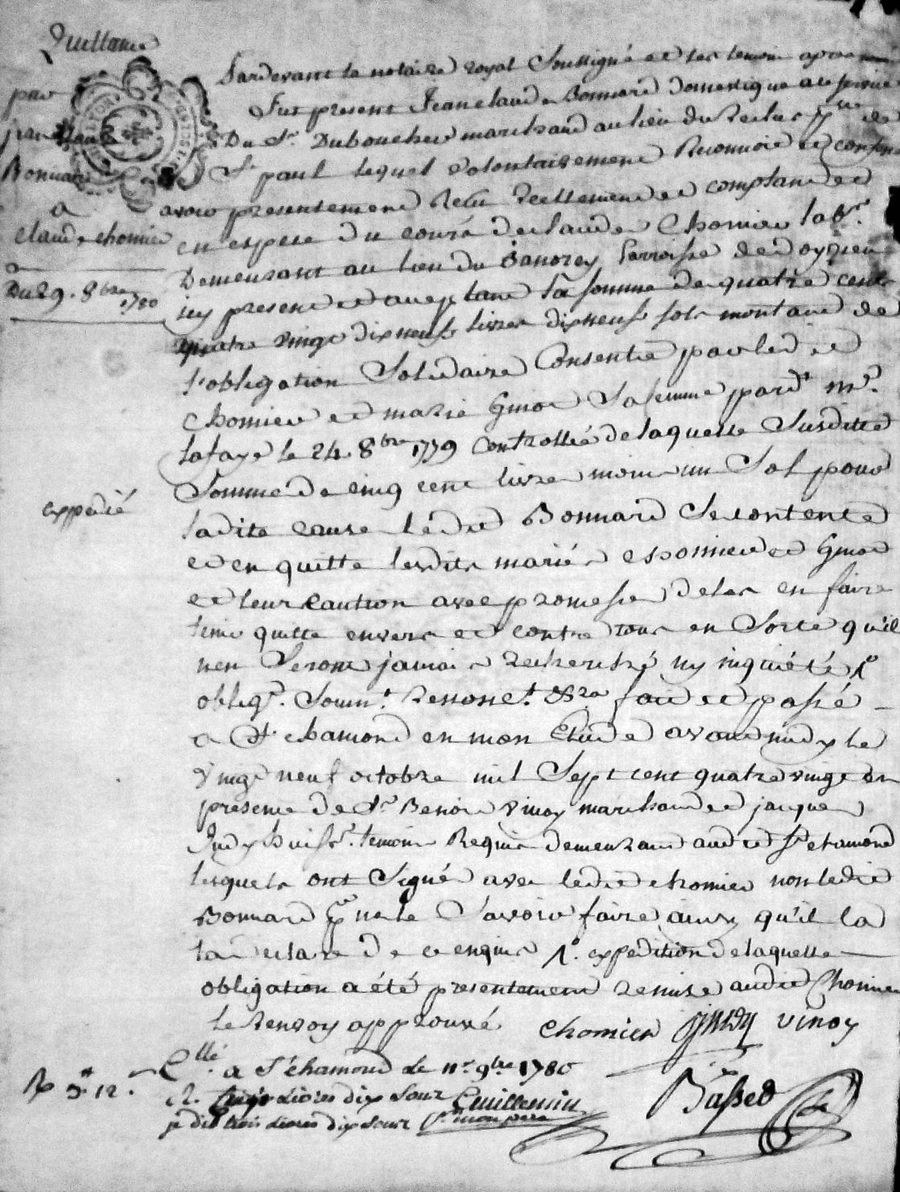 Quittance
par
jean Claude
Bonnard
a
claude chomier
Du 29. 8bre 1780
Pardevant le notaire royal Soussigné et les temoin apres
Fut present Jean claude Bonnard domestique au service
Du Sr. Dubouchet marchand au lieu du Reclus psse de
St. paul lequel volontairement Reconnoit et confesse
avoir presentement Recu Reellement et comptant et
en espece du cours de claude Chomier labr.
Demeurant au lieu du Banorey parroisse de doyzieu
icy present et aceptant la somme de quatre cents
quatre vingt dix neuf livres dix neuf sols montant de
l'obligation Solidaire Consentie par led et
Chomier et marie Gmot sa femme pard. Me.
Lafaye le 24. 8bre 1779 controllée de laquelle Susditte
Somme de cinq cent livre moin un Sol pour
expedié
ladite cause ledit Bonnard se contente
et en quitte lesdits mariés chomier et Gmot
et leur caution avec promesse de les en faire
tenir quitte envers et contre tous en Sorte qu'il
nen Seront jamais Recherché ny inquiété 1o
obligon. Soumt. Renonct. &ra fait et passé
a St chamond en mon Etude avant midy le
vingt neuf octobre mil Sept cent quatre vingt en
presence de Sr. Benoit Vinoy marchand et jacque
Judy huissr. temoins Requis demeurant audit St chamond
lesquels ont Signé avec ledit chomier non ledit
Bonnard pr ne le Sçavoir faire ainsy qu'il la
la declaré de ce enquis 1o. expedition de laquelle
obligation a été presentement remise audit Chomier
le Renvoy approuvé chomier Judy vinoy
Cllé. a St chamond le 11e 9bre 1780
R 3# 12s
R. trois livres dix sous Cuillemin
je dis trois livres dix sous pr mon pere
Basset